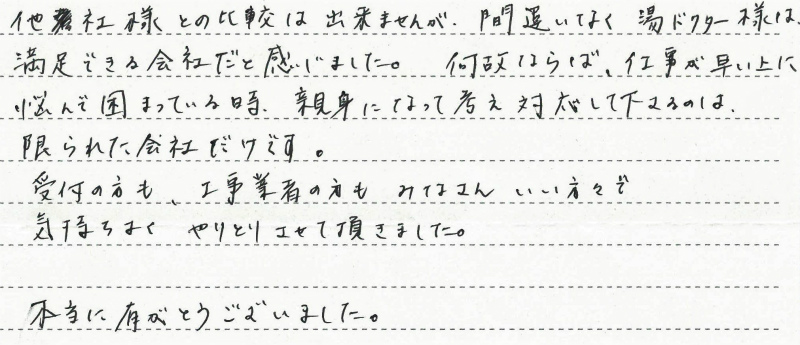 他社様との比較は出来ませんが、間違いなく湯ドクター様は、
満足できる会社だと感じました。 何故ならば、仕事が早い上に
悩んで困まっている時、親身になって考え対応して下さるのは、
限られた会社だけです。
受付の方も、工事業者の方も みなさん いい方々で
気持ちよく やりとりさせて頂きました。
本当に有がとうございました。